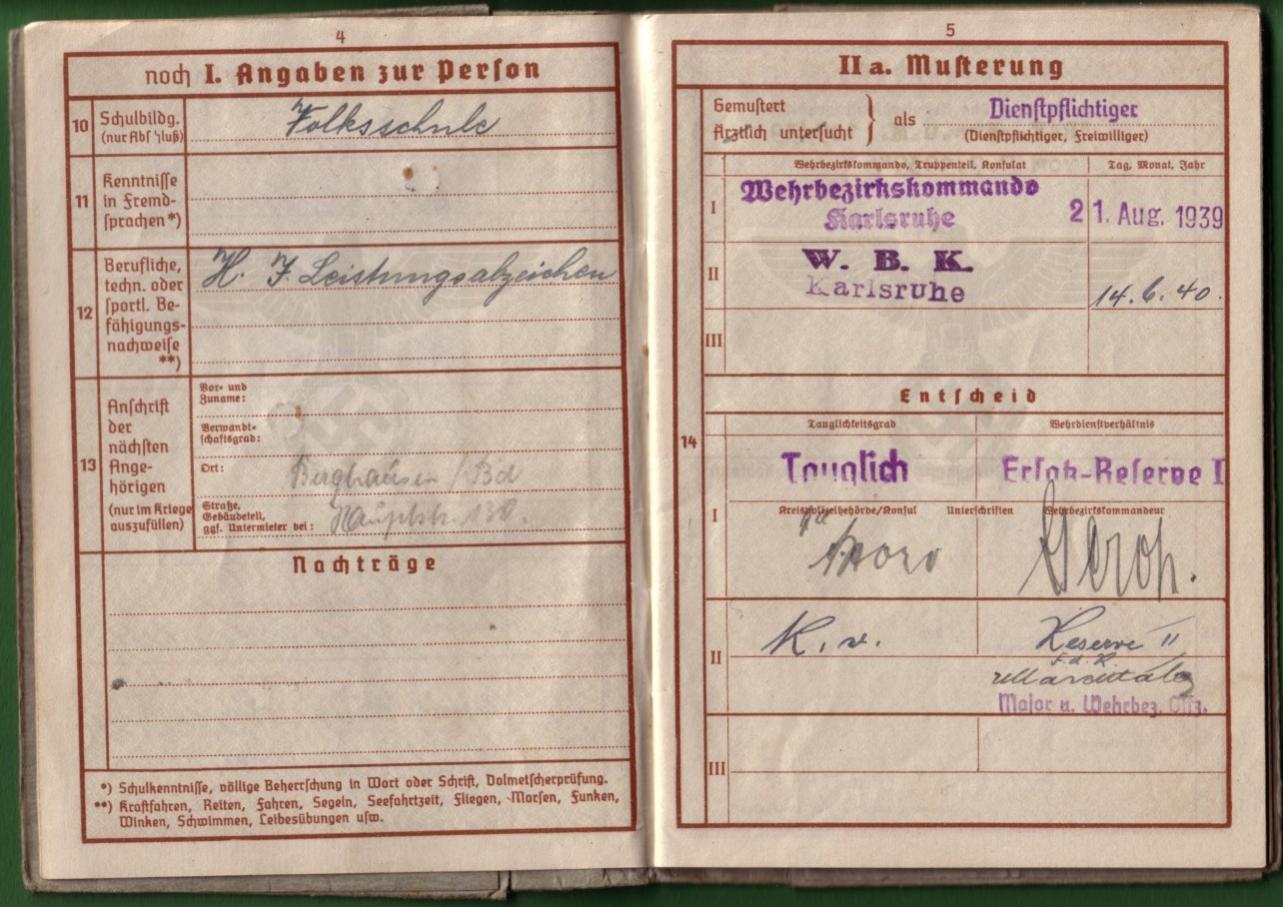 4
noch I. Angaben zur Person
10 Schulbildg. (nur Abschluß)
Volksschule
11 Kenntnisse in Fremdsprachen*)
12 Berufliche, techn. oder sportl. Befähigungsnachweise **)
H. J. Leistungsabzeichen
13 Anschrift der nächsten Angehörigen (nur im Kriege auszufüllen)
Vor- und Zuname:
Verwandtschaftsgrad:
Ort: Berghausen / Bd
Straße, Gebäudeteil, ggf. Untermieter bei: Hauptstr. 138.
Nachträge
*) Schulkenntnisse, völlige Beherrschung in Wort oder Schrift, Dolmetscherprüfung.
**) Kraftfahren, Reiten, Fahren, Segeln, Seefahrtzeit, Fliegen, Morsen, Funken,
Winken, Schwimmen, Leibesübungen usw.
5
II a. Musterung
Gemustert
Ärztlich untersucht } als Dienstpflichtiger
(Dienstpflichtiger, Freiwilliger)
Wehrbezirkskommando, Truppenteil, Konsulat Tag, Monat, Jahr
I Wehrbezirkskommando
Karlsruhe 21. Aug. 1939
II W. B. K.
Karlsruhe 14. 6. 40.
III
Entscheid
14
Tauglichkeitsgrad Wehrdienstverhältnis
Tauglich Ersatz-Reserve I
I Kreispolizeibehörde/Konsul Unterschriften Wehrbezirkskommandeur
II K. v. Reserve II
Major u. Wehrbez. Offz.
III